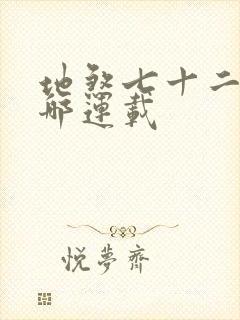 地煞七十二
那運載
悦夢齋